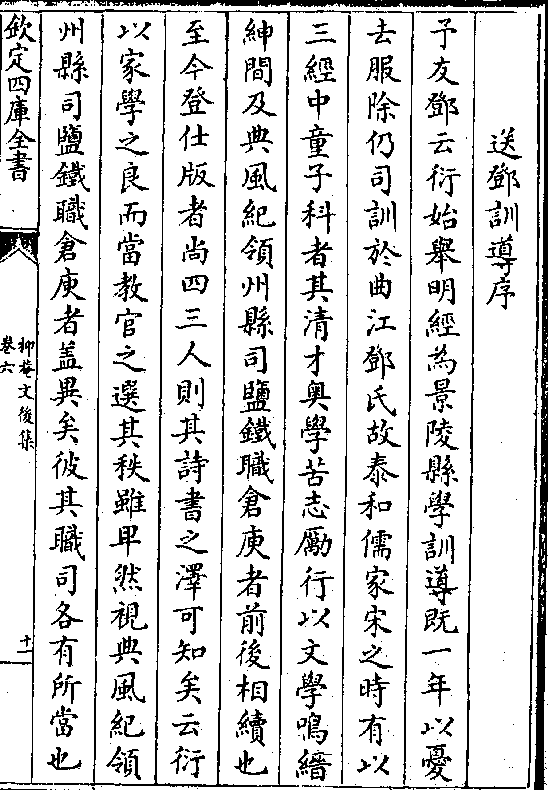 送鄧訓導序
予友鄧云衍始舉明經為景陵縣學訓導既一年以憂
去服除仍司訓於曲江鄧氏故泰和儒家宋之時有以
三經中童子科者其清才奧學苦志勵行以文學鳴縉
紳間及典風紀領州縣司鹽鐵職倉庾者前後相續也
至今登仕版者尚四三人則其詩書之澤可知矣云衍
以家學之良而當教官之選其秩雖卑然視典風紀領
州縣司鹽鐵職倉庾者盖異矣彼其職司各有所當也
欽定四庫全書
抑菴文後集
卷六
十